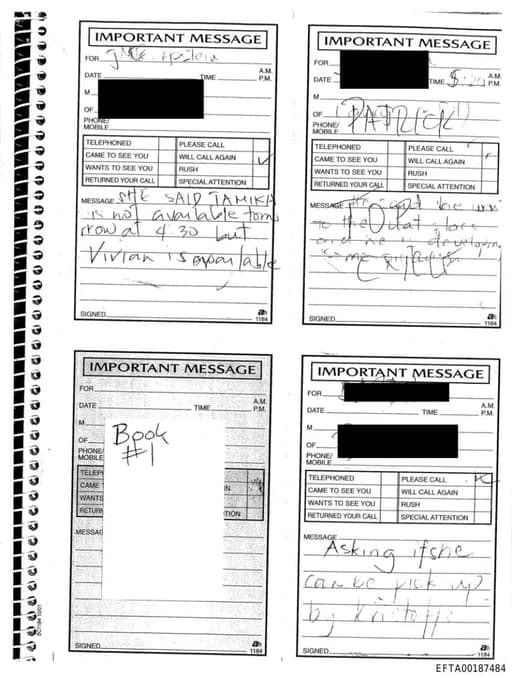 IMPORTANT MESSAGE
FOR Epstein
DATE TIME A.M.
P.M.
M
OF
PHONE/
MOBILE
TELEPHONED PLEASE CALL
CAME TO SEE YOU WILL CALL AGAIN ✓
WANTS TO SEE YOU RUSH
RETURNED YOUR CALL SPECIAL ATTENTION
MESSAGE SHE SAID TAMIKA
is not available tomo
rrow at 4.30 but
Vivian is available
SIGNED
1184
IMPORTANT MESSAGE
FOR
DATE TIME A.M.
P.M.
M
OF PATRICK
PHONE/
MOBILE
TELEPHONED PLEASE CALL
CAME TO SEE YOU WILL CALL AGAIN
WANTS TO SEE YOU RUSH
RETURNED YOUR CALL SPECIAL ATTENTION
MESSAGE
to the place
and he is
some
SIGNED
1184
IMPORTANT MESSAGE
FOR
DATE TIME A.M.
P.M.
M
OF
PHONE/
MOBILE
Book
#1
TELEP
CAME IN
WANTS
RETURN TION
MESSAG
SIGNED
1184
IMPORTANT MESSAGE
FOR
DATE TIME A.M.
P.M.
M
OF
PHONE/
MOBILE
TELEPHONED PLEASE CALL ✓
CAME TO SEE YOU WILL CALL AGAIN
WANTS TO SEE YOU RUSH
RETURNED YOUR CALL SPECIAL ATTENTION
MESSAGE
Asking if she
can be pick up
by
SIGNED
1184
EFTA00187484